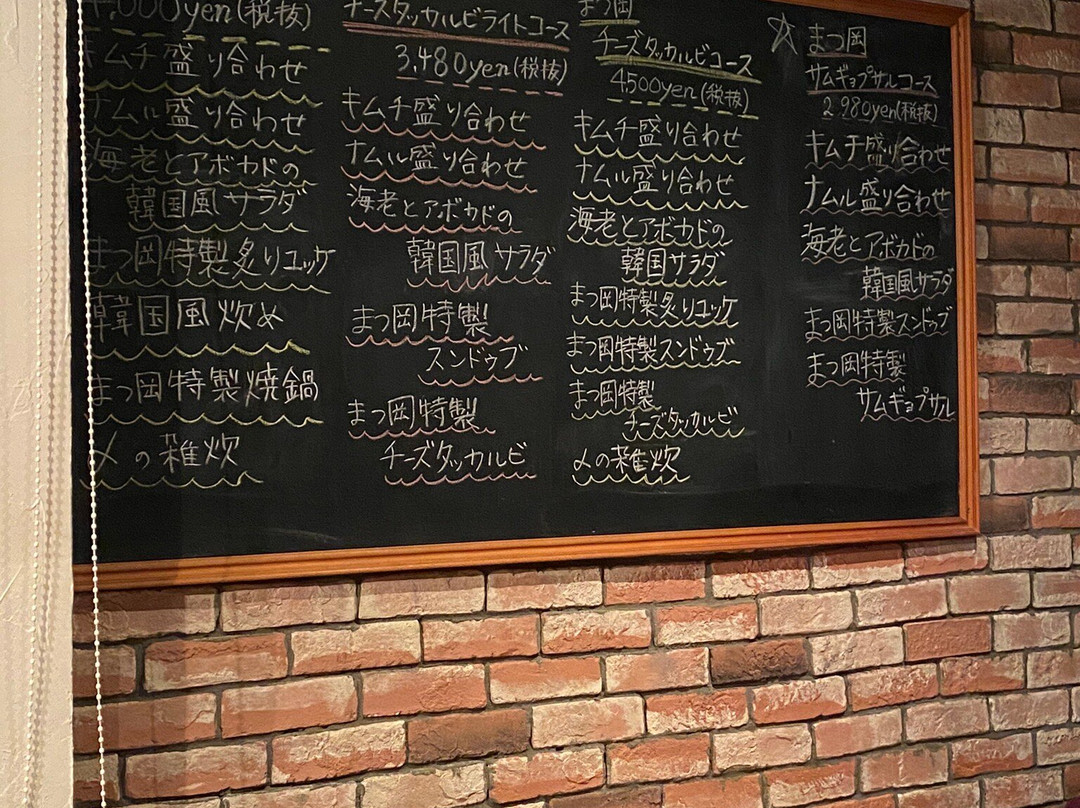 ,000yen(税抜)
キムチ盛り合わせ
ナムル盛り合わせ
海老とアボカドの
韓国風サラダ
まつ岡特製炙りユッケ
韓国風炊め
まつ岡特製焼鍋
〆の雑炊
チーズタッカルビライトコース
3,480yen(税抜)
キムチ盛り合わせ
ナムル盛り合わせ
海老とアボカドの
韓国風サラダ
まつ岡特製
スンドゥブ
まつ岡特製
チーズダッカルビ
まつ岡
チーズタッカルビコース
4,500yen(税抜)
キムチ盛り合わせ
ナムル盛り合わせ
海老とアボカドの
韓国サラダ
まつ岡特製炙りユッケ
まつ岡特製スンドゥブ
まつ岡特製
チーズタッカルビ
〆の雑炊
☆まつ岡
サムギョプサルコース
2,980yen(税抜)
キムチ盛り合わせ
ナムル盛り合わせ
海老とアボカドの
韓国風サラダ
まつ岡特製スンドゥブ
まつ岡特製
サムギョプサル